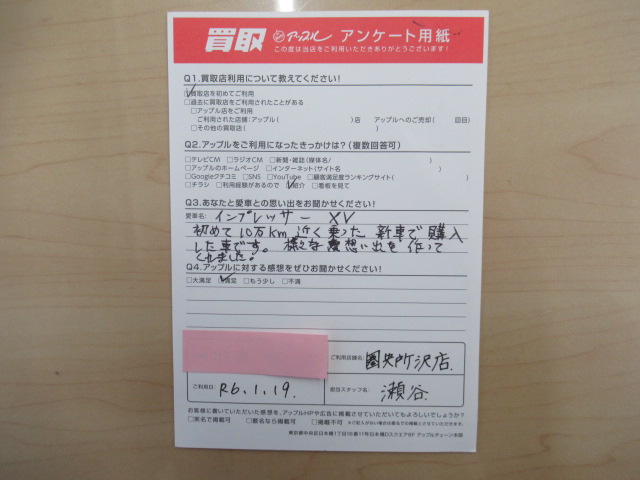 買取 アップル アンケート用紙
この度は当店をご利用いただきありがとうございます!
Q1.買取店利用について教えてください!
☑買取店を初めてご利用
□過去に買取店をご利用されたことがある
□アップル店をご利用
ご利用された店舗:アップル( )店 アップルへのご売却( 回目)
□その他の買取店( )
Q2.アップルをご利用になったきっかけは?(複数回答可)
□テレビCM □ラジオCM □新聞・雑誌(媒体名/ )
□アップルのホームページ □インターネット(サイト名 )
□Googleクチコミ □SNS □YouTube □顧客満足度ランキングサイト( )
□チラシ □利用経験があるので ☑紹介 □看板を見て
Q3.あなたと愛車との思い出をお聞かせください!
愛車名: インプレッサー XV
初めて10万km近く乗った新車で購入
した車です。様々な思い出を作って
くれました。
Q4.アップルに対する感想をぜひお聞かせください!
□大満足 ☑満足 □もう少し □不満
ご利用店舗名: 圏央所沢店.
ご利用日: R6.1.19.
担当スタッフ名: 瀬谷
お客様に書いていただいた感想を、アップルHPや広告に掲載させていただいてもよろしいでしょうか?
□実名で掲載可 □匿名なら掲載可 □掲載不可 ※ご記入がない場合は匿名での掲載とさせていただきます。
東京都中央区日本橋1丁目16番11号日本橋Dスクエア8F アップルチェーン本部